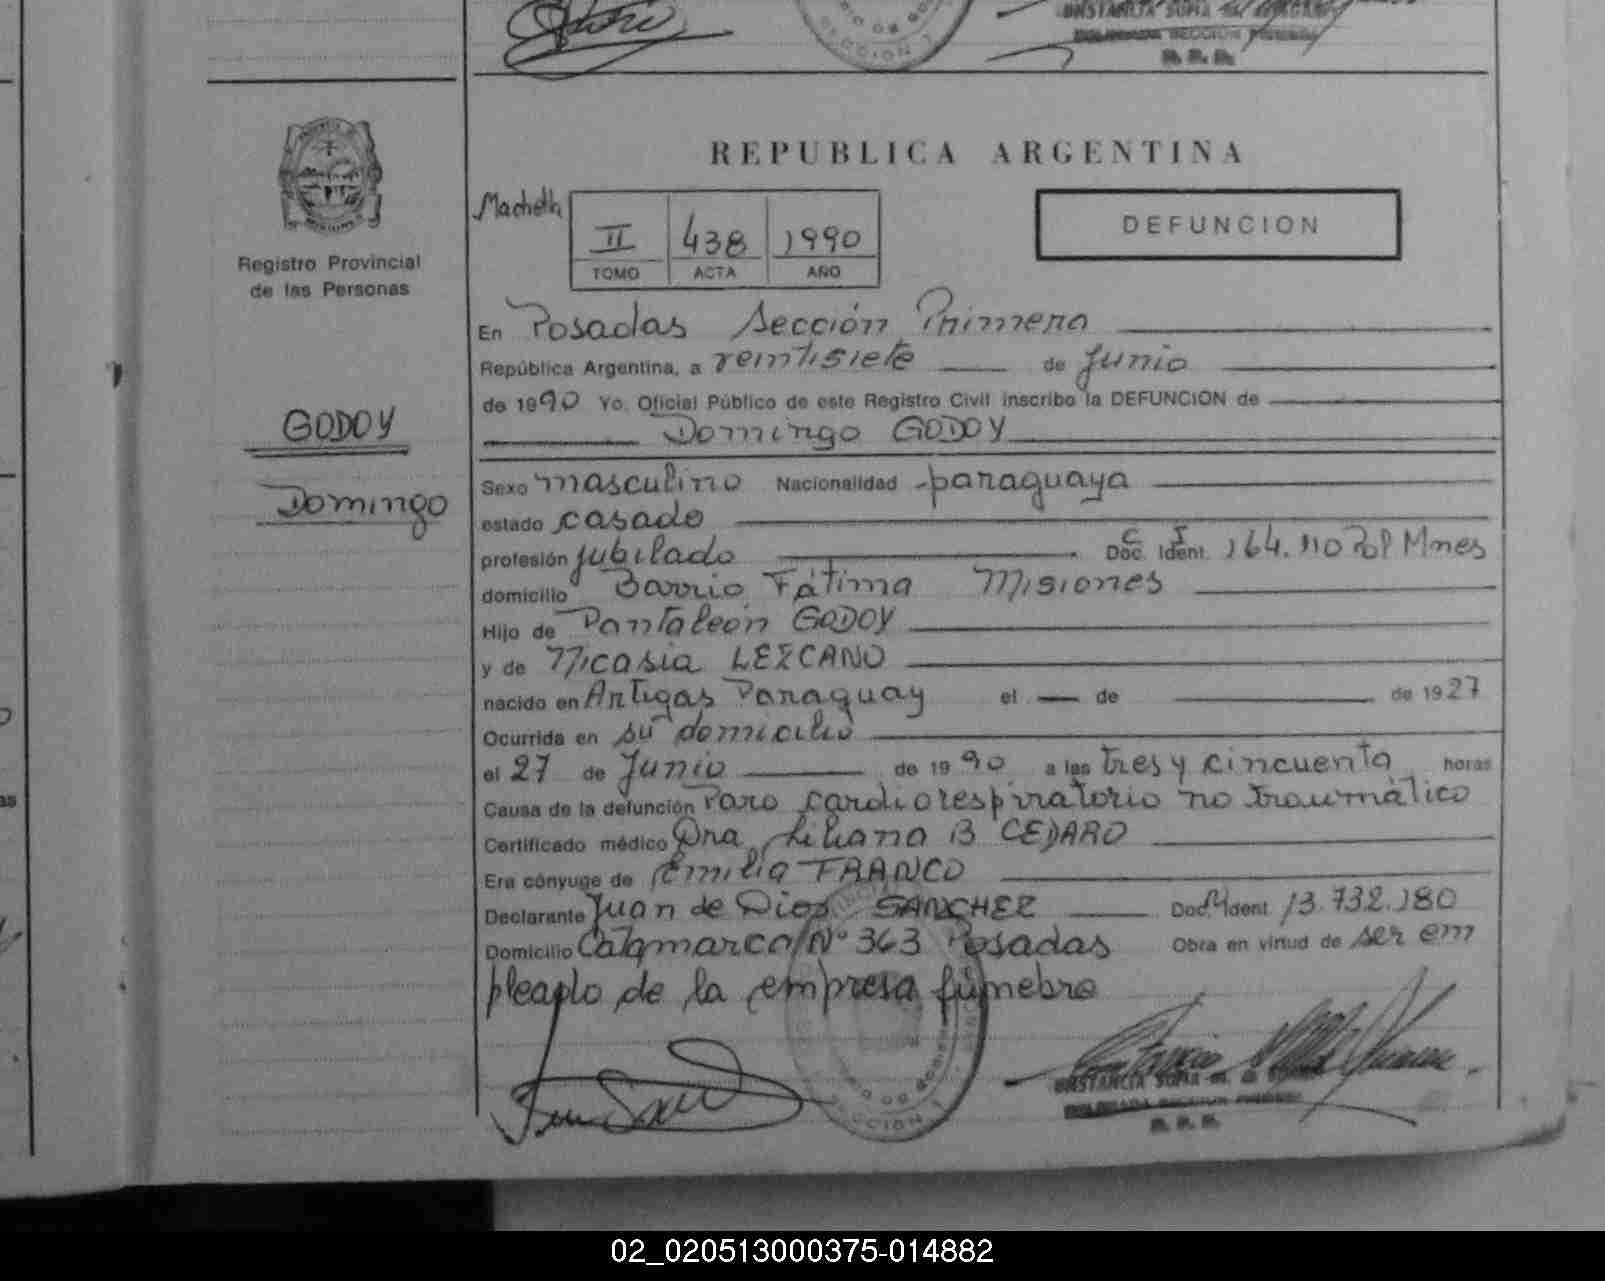 REPUBLICA ARGENTINA
Registro Provincial
de las Personas
II 438 1990
TOMO ACTA AÑO
DEFUNCION
GODOY
Domingo
En Posadas Sección Primera
República Argentina, a veintisiete de Junio
de 1990 Yo, Oficial Público de este Registro Civil inscribo la DEFUNCION de
Domingo GODOY
Sexo masculino Nacionalidad paraguaya
estado casado
profesión jubilado Doc. Ident. C I 164.110 Pol Mnes
domicilio Barrio Fátima Misiones
Hijo de Pantaleón GODOY
y de Micasia LEZCANO
nacido en Artigas Paraguay el de de 1927
Ocurrida en su domicilio
el 27 de Junio de 1990 a las tres y cincuenta horas
Causa de la defunción Paro cardiorespiratorio no traumático
Certificado médico Dra Liliana B CEDARO
Era cónyuge de Emilia FRANCO
Declarante Juan de Dios SANCHEZ Doc. Ident. 13.732.180
Domicilio Catamarca Nº 363 Posadas Obra en virtud de ser em
pleado de la empresa fúnebre
SECCION 1
02_020513000375-014882